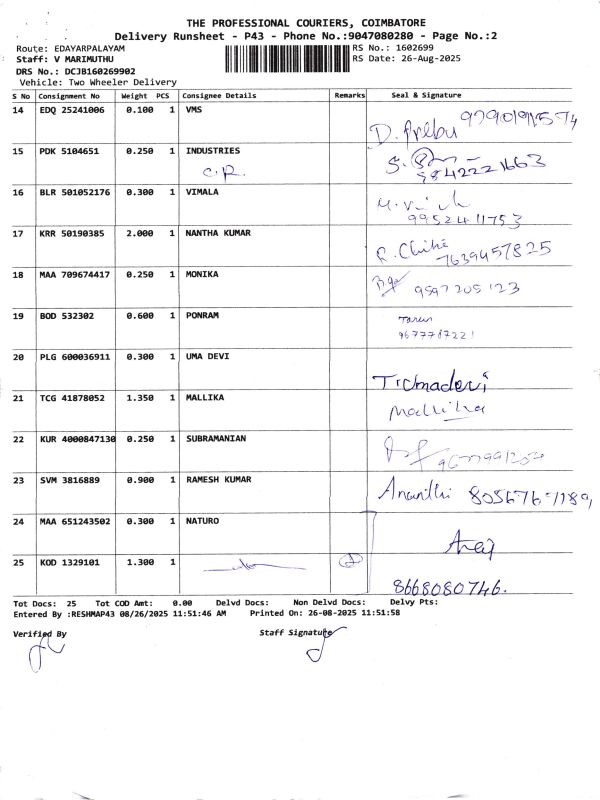 THE PROFESSIONAL COURIERS, COIMBATORE
Delivery Runsheet - P43 - Phone No.:9047080280 - Page No.:2
Route: EDAYARPALAYAM RS No.: 1602699
Staff: V MARIMUTHU RS Date: 26-Aug-2025
DRS No.: DCJB160269902
Vehicle: Two Wheeler Delivery
S No Consignment No Weight PCS Consignee Details Remarks Seal & Signature
14 EDQ 25241006 0.100 1 VMS
15 PDK 5104651 0.250 1 INDUSTRIES
C.R. 9842221663
16 BLR 501052176 0.300 1 VIMALA
9952411753
17 KRR 50190385 2.000 1 NANTHA KUMAR
7639457825
18 MAA 709674417 0.250 1 MONIKA
9597205123
19 BOD 532302 0.600 1 PONRAM
Tarun
9677787221
20 PLG 600036911 0.300 1 UMA DEVI
21 TCG 41878052 1.350 1 MALLIKA
Mallika
22 KUR 4000847130 0.250 1 SUBRAMANIAN
23 SVM 3816889 0.900 1 RAMESH KUMAR
Ananthi
24 MAA 651243502 0.300 1 NATURO
25 KOD 1329101 1.300 1
8668080746.
Tot Docs: 25 Tot COD Amt: 0.00 Delvd Docs: Non Delvd Docs: Delvy Pts:
Entered By :RESHMAP43 08/26/2025 11:51:46 AM Printed On: 26-08-2025 11:51:58
Verified By Staff Signature